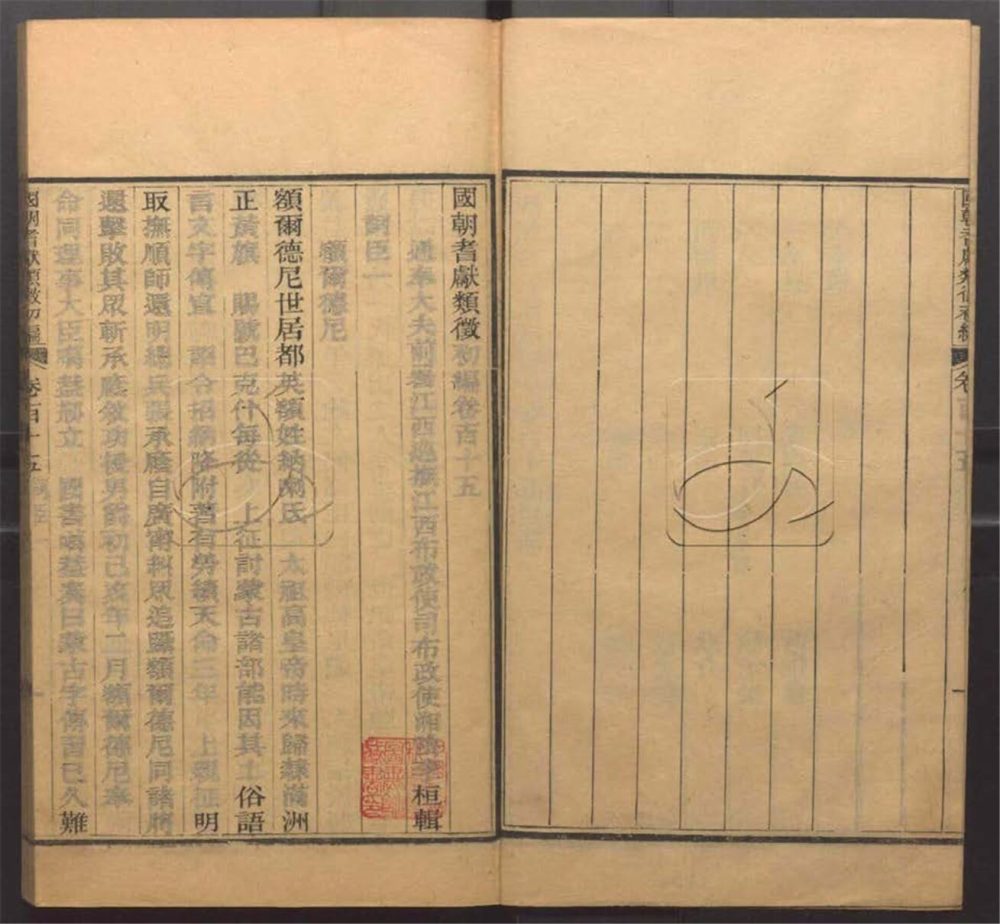 國朝耆獻類徵初編卷百十五
通奉大夫前署江西巡撫江西布政使司布政使湘陰李桓輯
詞臣一
額爾德尼
額爾德尼世居都英額姓納喇氏 太祖高皇帝時來歸隸滿洲
正黃旗 賜號巴克什每從 上征討蒙古諸部能因其土俗語
言文字傳宣 詔令招納降附著有勞績天命三年 上親征明
取撫順師還明總兵張承廕自廣寧糾眾追躡額爾德尼同諸將
還擊敗其眾斬承廕敘功授男爵初己亥年二月額爾德尼奉
命同理事大臣噶蓋創立 國書噶蓋奏曰蒙古字傳習已久難
國朝耆獻類徵初編 卷百十五 詞臣 一